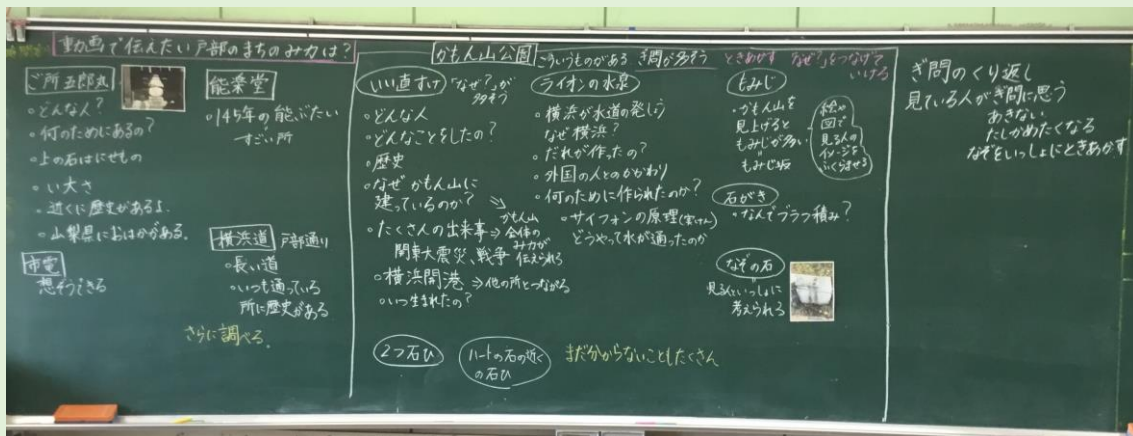 動画で伝えたい戸部のまちのみ力は？
ご所五郎丸
・どんな人？
・何のためにあるの？
・上の石はにせもの
・い大さ
・近くに歴史があるよ。
・山梨県におはかがある。
市電
想ぞうできる
能楽堂
・145年の能ぶたい
すごい所
横浜道 戸部通り
・長い道
・いつも通っている
所に歴史がある
さらに調べる。
かもん山公園 こういうものがある ぎ問が多そう ときあかす なぜ?をつなげて
いける
いい直すけ 「なぜ?」が
多そう
・どんな人
・どんなことをしたの？
・歴史
・なぜ かもん山に
建っているのか？
・たくさんの出来事⇒
関東大震災、戦争
かもん山
全体の
み力が
伝えられる
・横浜開港 ⇒他の所とつながる
・いつ生まれたの？
ライオンの水泉
・横浜が水道の発しょう
なぜ横浜？
・だれが作ったの？
・外国の人とのかかわり
・何のために作られたのか？
・サイフォンの原理
どうやって水が通ったのか
もみじ
・かもん山を
見上げると
もみじが多い
＝
もみじ坂
絵や
図で
見る人の
イメージを
ふくらませる
石がき
・なんでブラフ積み？
なぞの石
＝
見る人といっしょに
考えられる
2つ石ひ
ハートの石の近く
の石ひ
まだ分からないこともたくさん
ぎ問のくり返し
見ている人がぎ問に思う
あきない
たしかめたくなる
なぞをいっしょにときあかす